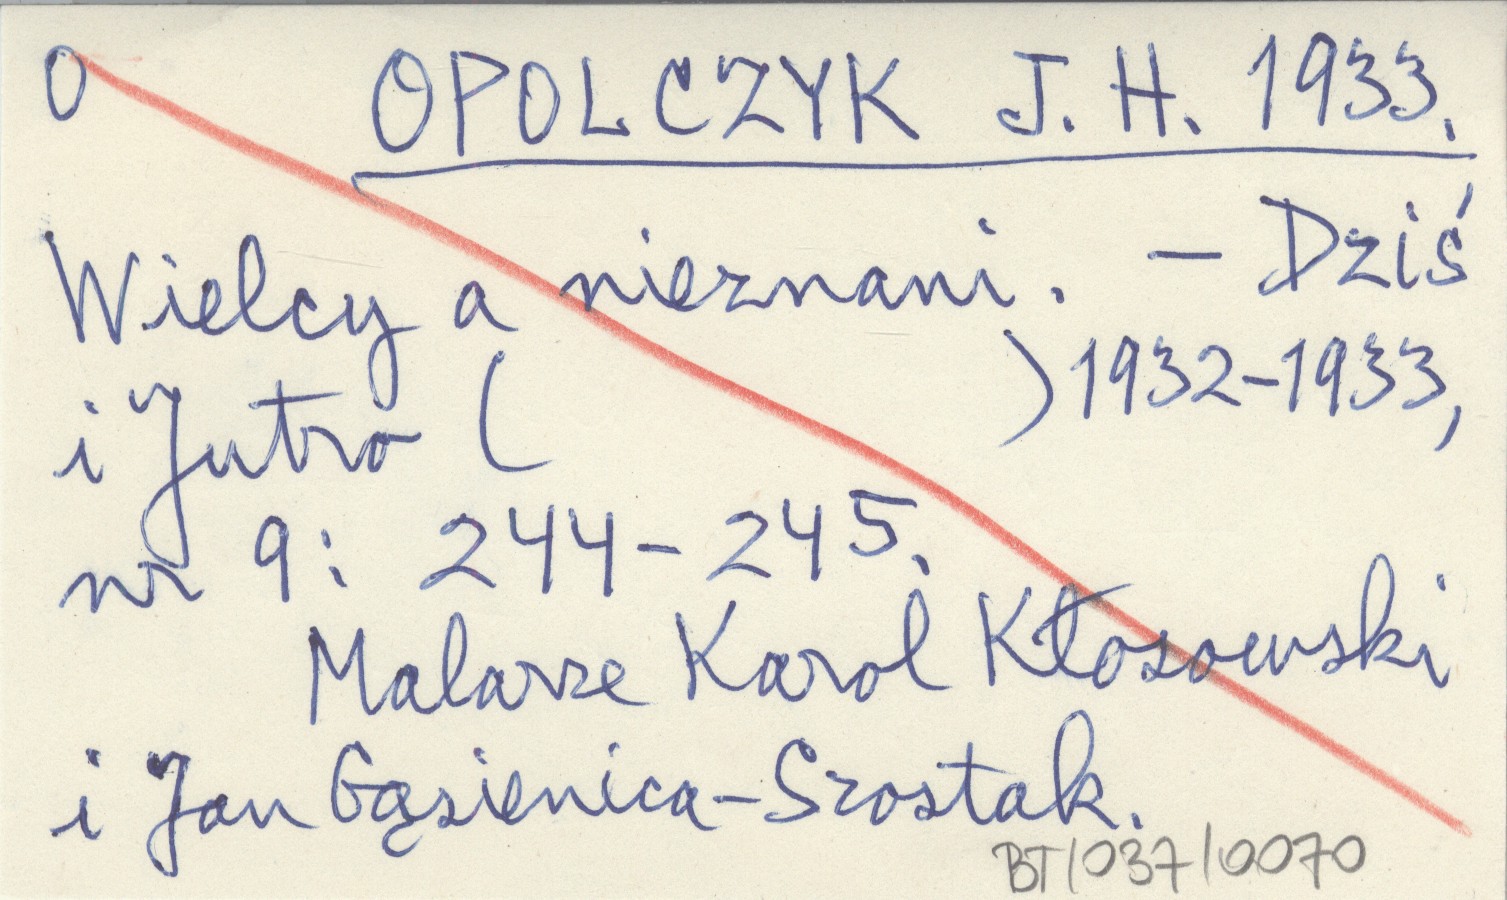 O OPOLCZYK J. H. 1933.
Wielcy a nieznani. – Dziś
i Jutro ( ) 1932-1933,
nr 9: 244-245.
Malarze Karol Kłosowski
i Jan Gąsienica-Szostak.
BT/037/0070